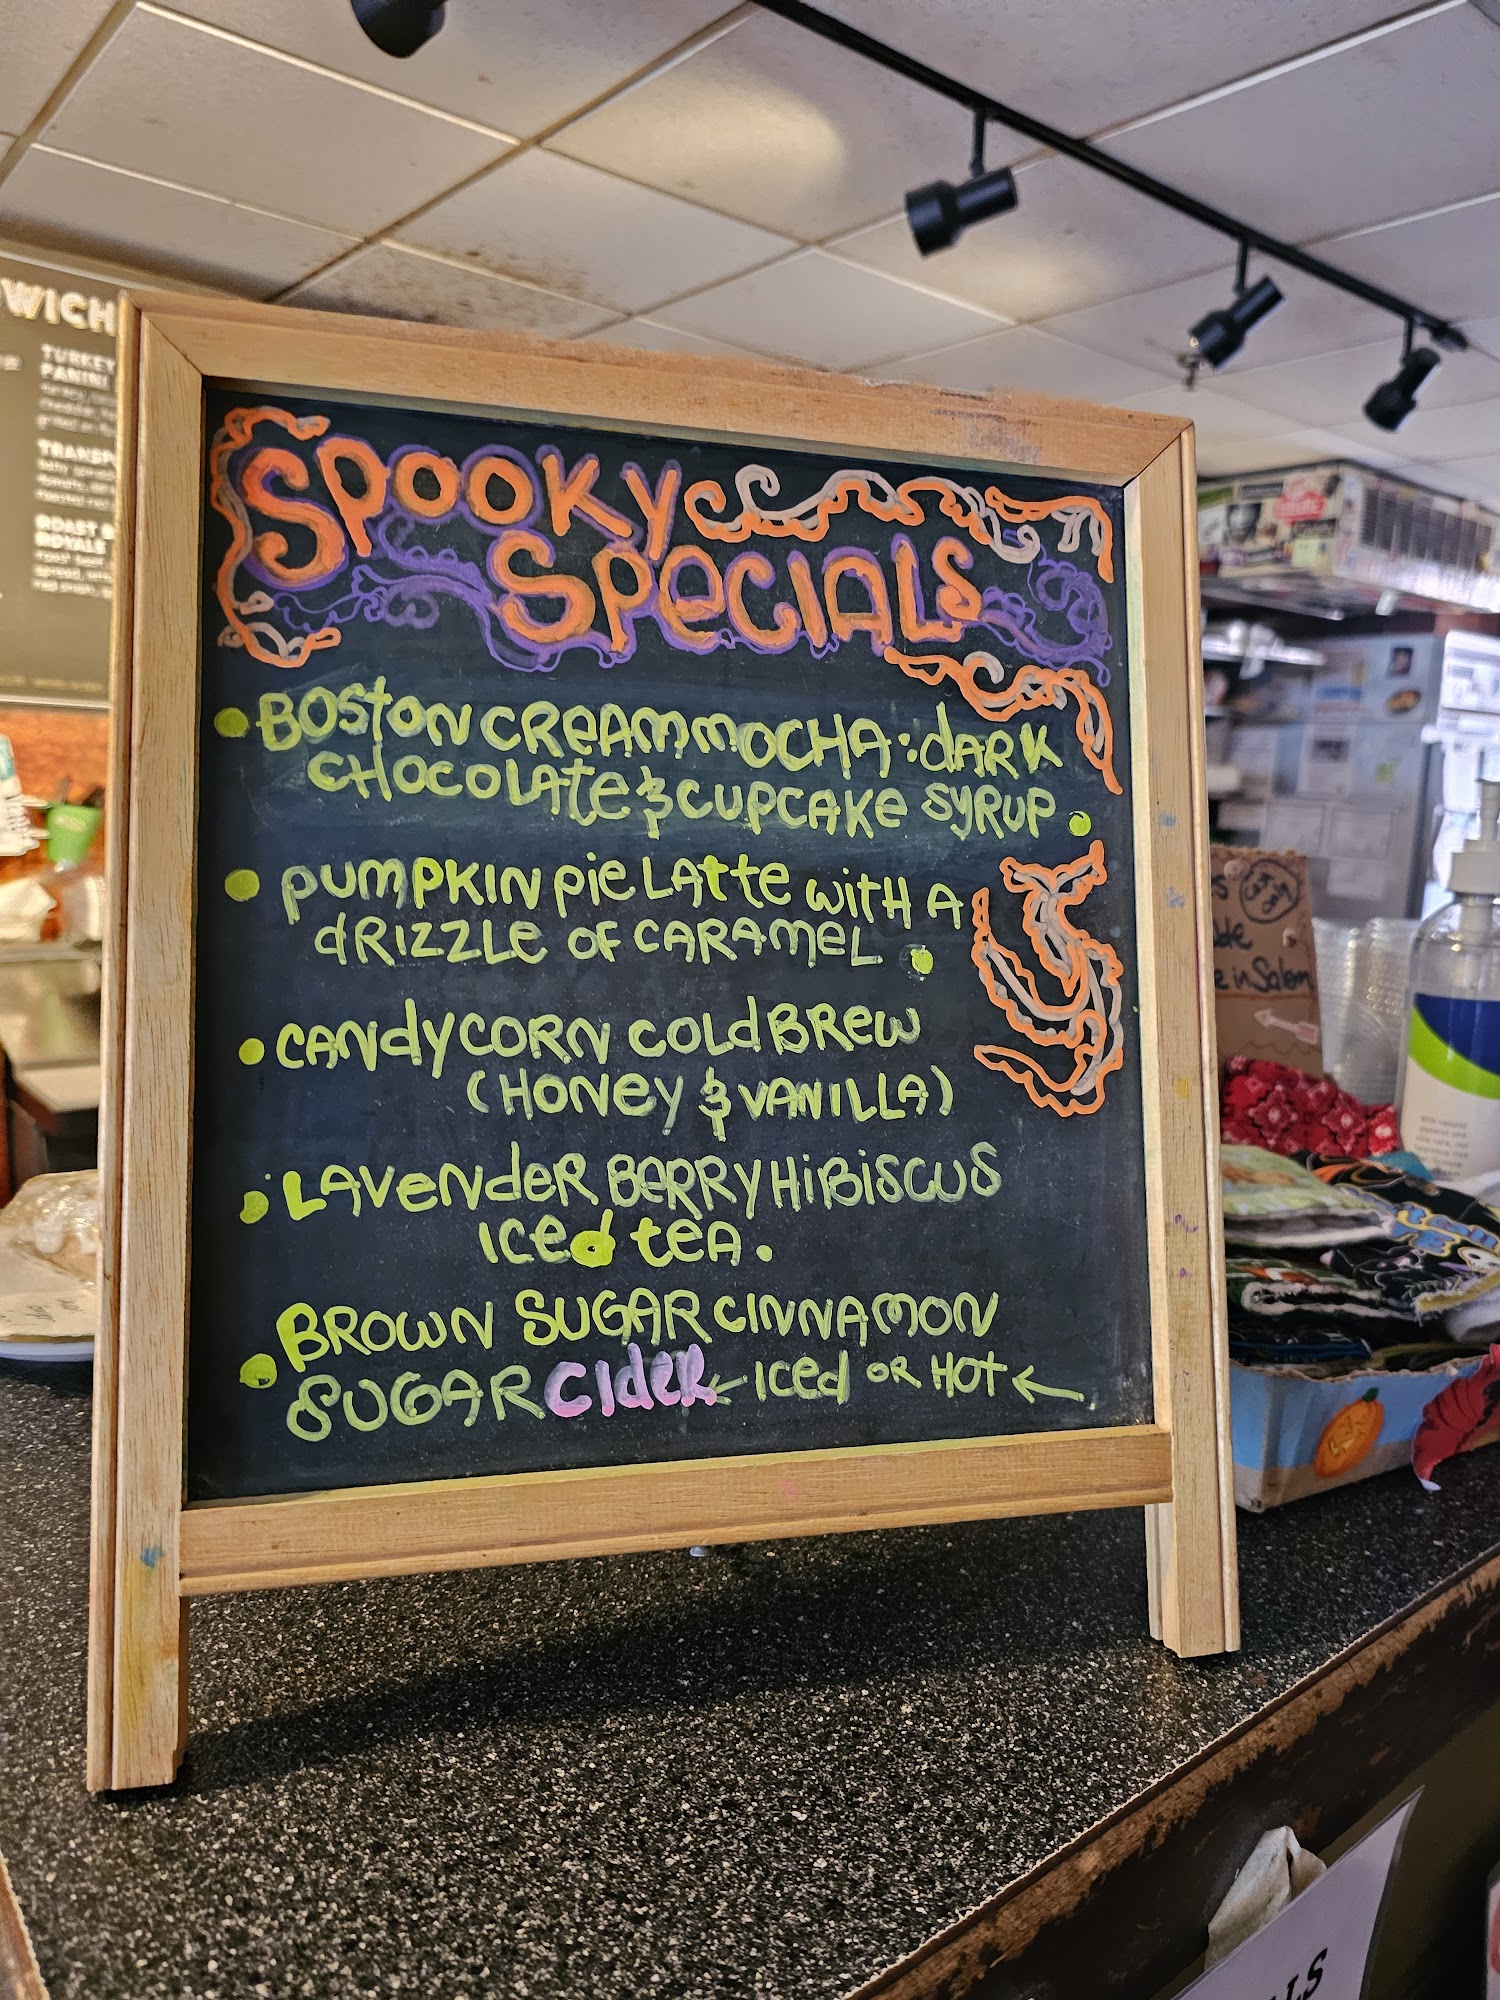 WICH
TURKEY
PANINI
TRANSP
ROAST B
ROYALE
SPOOKY
SPECIALS
• BOSTON CREAM MOCHA: DARK
CHOCOLATE & CUPCAKE SYRUP.
• PUMPKIN PIE LATTE WITH A
DRIZZLE OF CARAMEL.
• CANDY CORN COLD BREW
(HONEY & VANILLA)
• LAVENDER BERRY HIBISCUS
ICED TEA.
• BROWN SUGAR CINNAMON
SUGAR CIDER ← ICED OR HOT ←
e in Salem